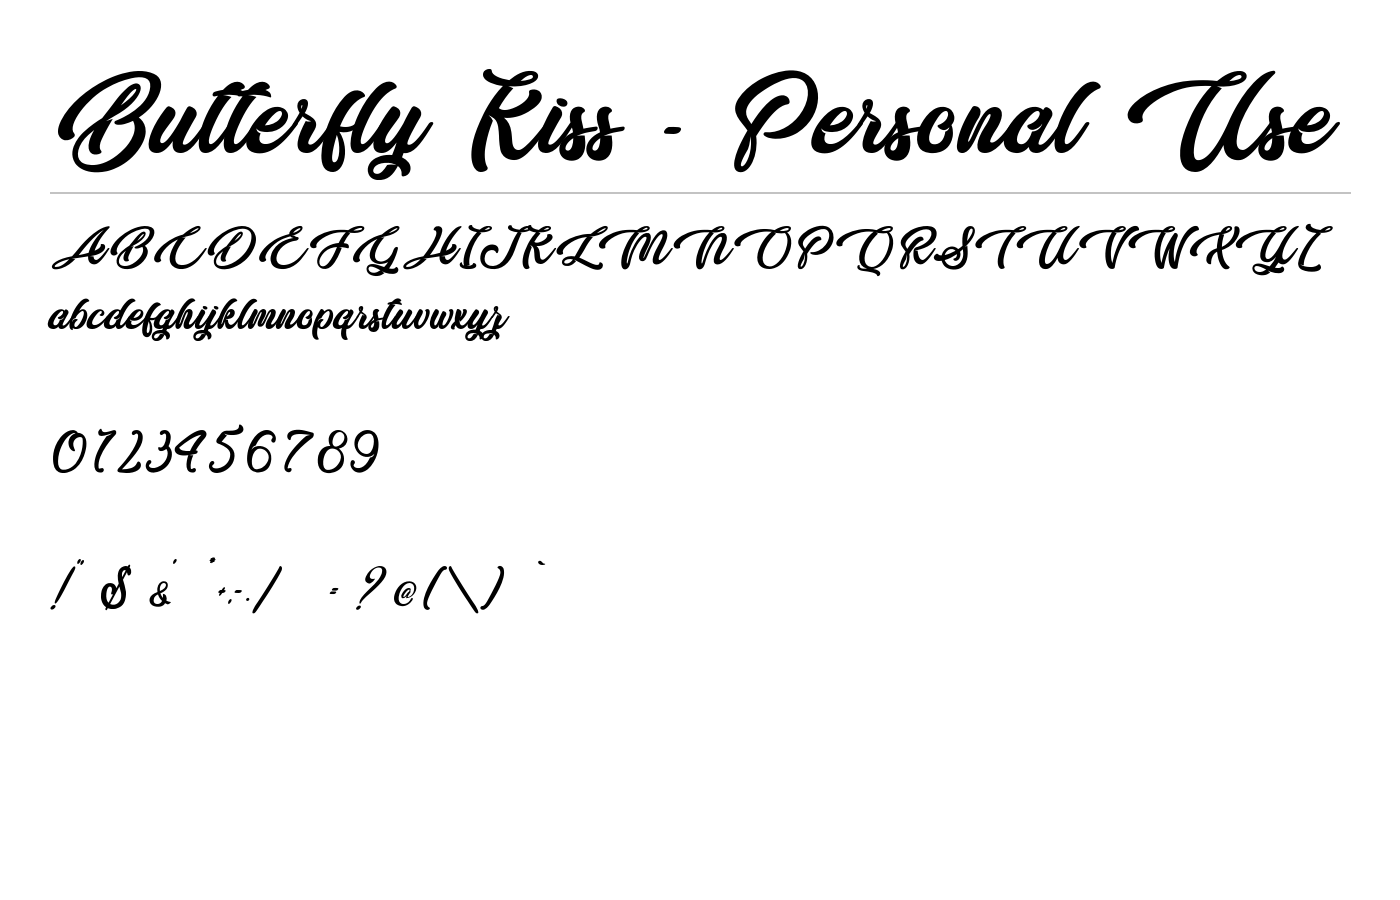 Butterfly Kiss - Personal Use
ABCDEFGHIJKLMNOPQRSTUVWXYZ
abcdefghijklmnopqrstuvwxyz
0123456789
!" $ & ' *+,-./ = ? @(\) `